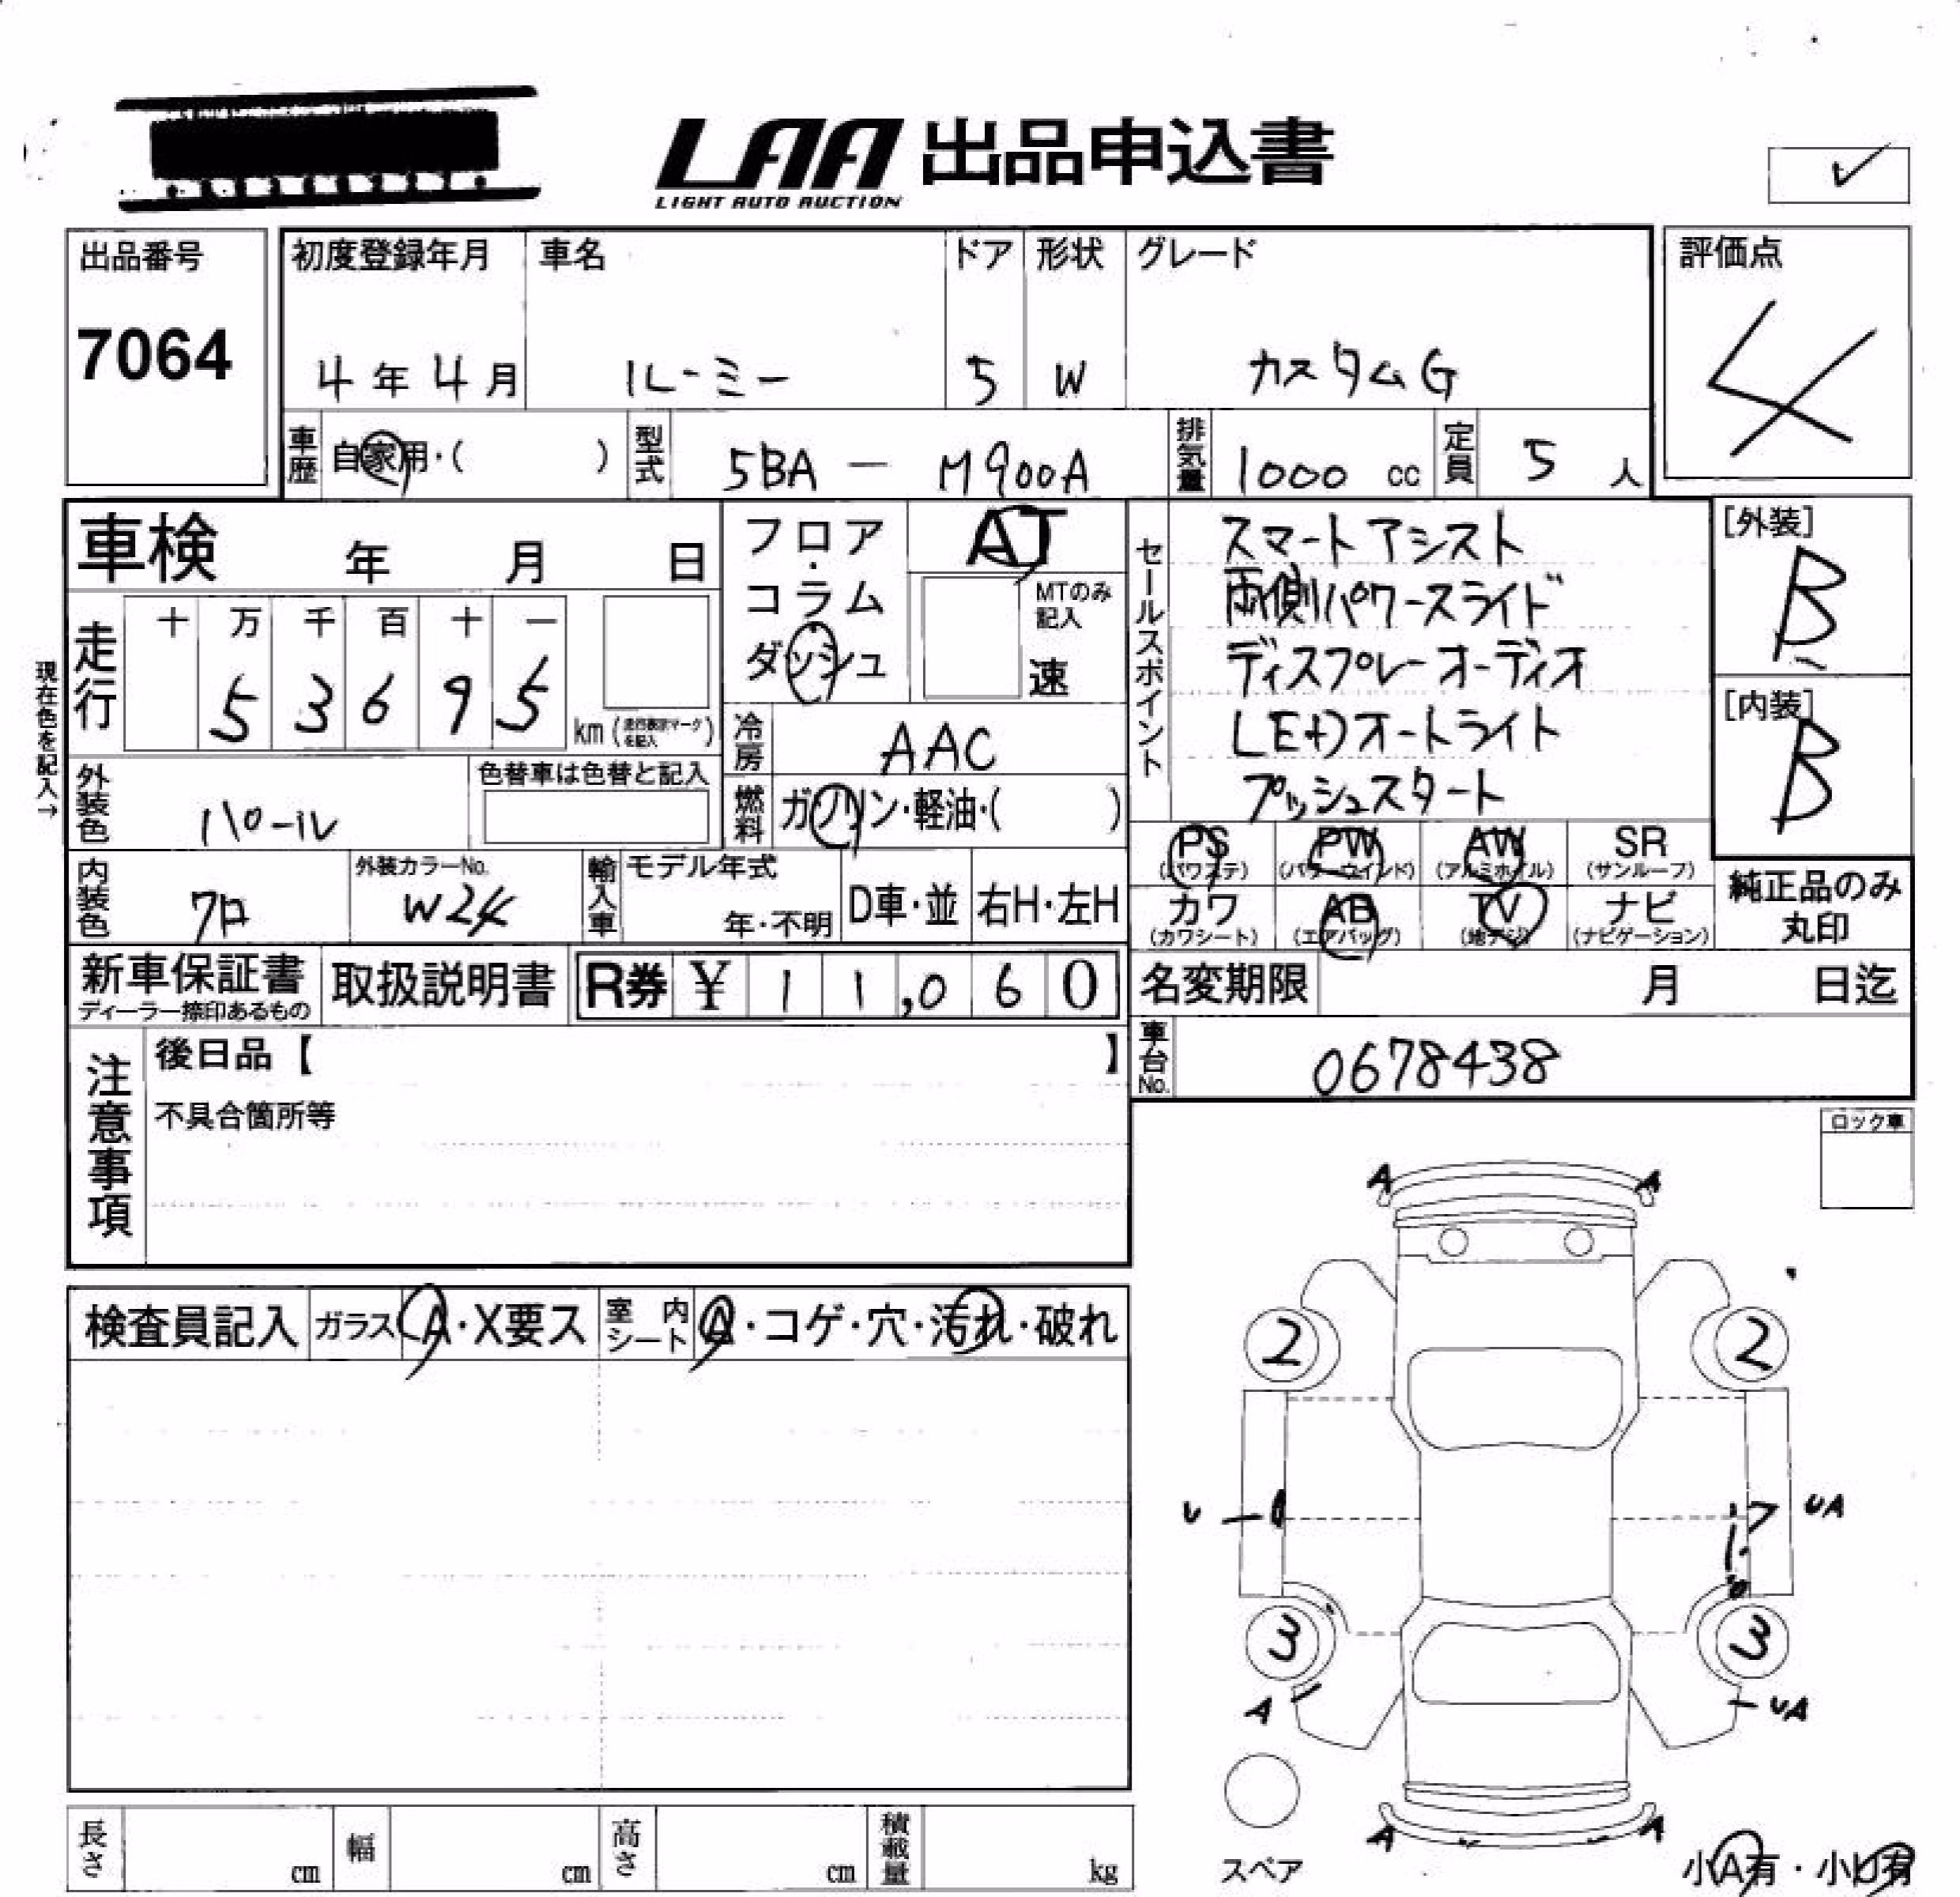 LAA 出品申込書
LIGHT AUTO AUCTION
出品番号
7064
初度登録年月
4年4月
車名
ルーミー
ドア
5
形状
W
グレード
カスタムG
評価点
4
車歴
自家用・( )
型式
5BA - M900A
排気量
1000 cc
定員
5 人
車検 年 月 日
フロア・コラム
ダッシュ
AT
MTのみ記入
速
セールスポイント
スマートアシスト
両側パワースライド
ディスプレーオーディオ
LEDオートライト
プッシュスタート
[外装]
B
[内装]
B
現在色を記入→
走行
十 万 千 百 十 一
5 3 6 9 5
km (走行表示マークを記入)
冷房
AAC
外装色
パール
色替車は色替と記入
燃料
ガソリン・軽油・( )
PS (パワステ)
PW (パワーウインド)
AW (アルミホイル)
SR (サンルーフ)
カワ (カワシート)
AB (エアバッグ)
TV (地デジ)
ナビ (ナビゲーション)
純正品のみ丸印
内装色
クロ
外装カラーNo.
W24
輸入車
モデル年式
年・不明
D車・並
右H・左H
新車保証書
ディーラー捺印あるもの
取扱説明書
R券 ¥ 1 1,0 6 0
名変期限 月 日迄
車台No.
0678438
注意事項
後日品【 】
不具合箇所等
ロック車
検査員記入
ガラス
A・X要ス
室内シート
A・コゲ・穴・汚れ・破れ
A A
2 2
U UA
3 3
A UA
A A
スペア
小A有・小U有
長さ cm
幅 cm
高さ cm
積載量 kg